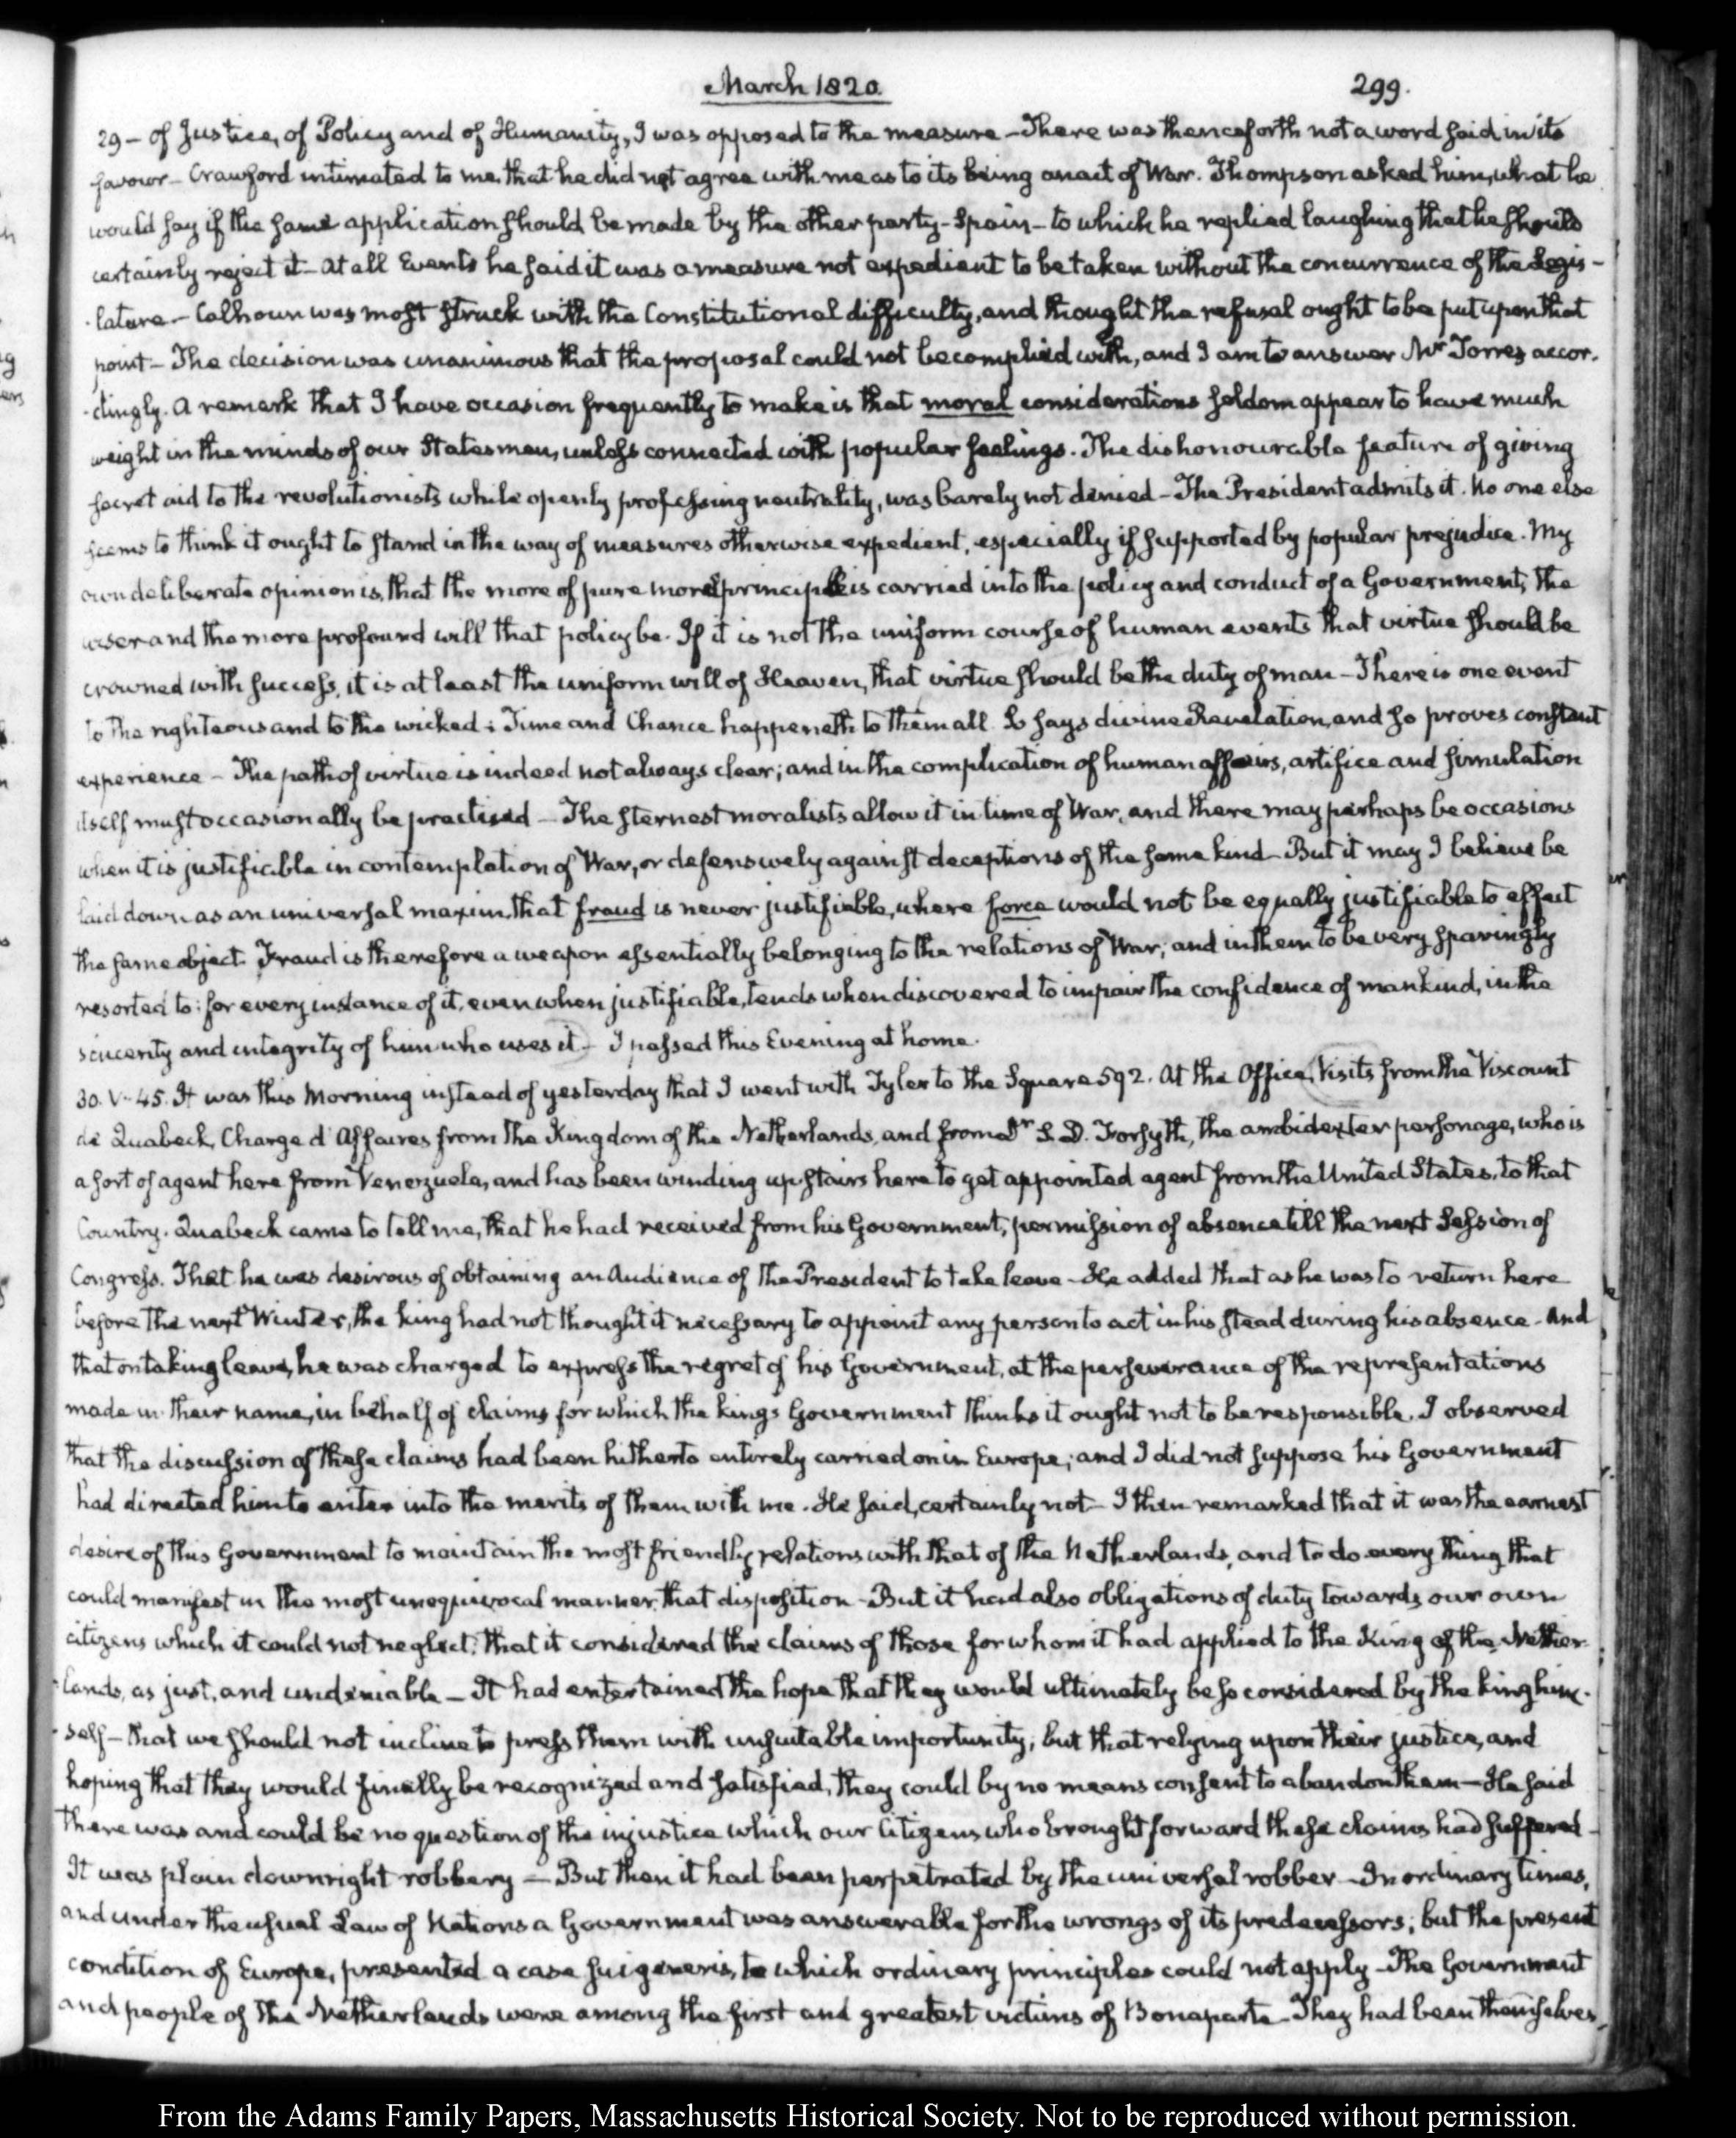 March 1820. 299.
29 – of Justice, of Policy and of Humanity, I was opposed to the measure – There was thenceforth not a word said in its
favour – Crawford intimated to me, that he did not agree with me as to its being an act of War. Thompson asked him, what he
would say if the same application should be made by the other party – Spain – to which he replied laughing that he should
certainly reject it – At all Events he said it was a measure not expedient to be taken without the concurrence of the Legis-
-lature – Calhoun was most struck with the Constitutional difficulty, and thought the refusal ought to be put upon that
point – The decision was unanimous that the proposal could not be complied with, and I am to answer Mr Torres accor-
-dingly. A remark that I have occasion frequently to make is that moral considerations seldom appear to have much
weight in the minds of our Statesmen, unless connected with popular feelings. The dishonourable feature of giving
secret aid to the revolutionists while openly professing neutrality, was barely not denied – The President admits it. No one else
seems to think it ought to stand in the way of measures otherwise expedient, especially if supported by popular prejudice. My
own deliberate opinion is, that the more of pure moral principle is carried into the policy and conduct of a Government, the
wiser and the more profound will that policy be. If it is not the uniform course of human events that virtue should be
crowned with success, it is at least the uniform will of Heaven, that virtue should be the duty of man – There is one event
to the righteous and to the wicked: Time and Chance happeneth to them all. So says divine Revelation, and so proves constant
experience – The path of virtue is indeed not always clear; and in the complication of human affairs, artifice and simulation
itself must occasionally be practised – The sternest moralists allow it in time of War, and there may perhaps be occasions
when it is justifiable in contemplation of War, or defensively against deceptions of the same kind – But it may I believe be
laid down as an universal maxim, that fraud is never justifiable, where force would not be equally justifiable to effect
the same object. Fraud is therefore a weapon essentially belonging to the relations of War; and in them to be very sparingly
resorted to: for every instance of it, even when justifiable, tends when discovered to impair the confidence of mankind, in the
sincerity and integrity of him who uses it – I passed this Evening at home.
30. V. 45. It was this Morning instead of yesterday that I went with Tyler to the Square 592. At the Office, Visits from the Viscount
de Quabeck, Charge d'Affaires from the Kingdom of the Netherlands, and from Mr S. D. Forsyth, the ambidexter personage, who is
a sort of agent here from Venezuela, and has been winding up stairs here to get appointed agent from the United States, to that
Country. Quabeck came to tell me, that he had received from his Government, permission of absence till the next Session of
Congress. That he was desirous of obtaining an Audience of the President to take leave – He added that as he was to return here
before the next Winter, the king had not thought it necessary to appoint any person to act in his stead during his absence – And
that on taking leave, he was charged to express the regret of his Government, at the perseverance of the representations
made in their name, in behalf of claims for which the king's Government thinks it ought not to be responsible. I observed
that the discussion of these claims had been hitherto entirely carried on in Europe; and I did not suppose his Government
had directed him to enter into the merits of them with me. He said, certainly not – I then remarked that it was the earnest
desire of this Government to maintain the most friendly relations with that of the Netherlands, and to do every thing that
could manifest in the most unequivocal manner that disposition – But it had also obligations of duty towards our own
citizens which it could not neglect: that it considered the claims of those for whom it had applied to the King of the Nether-
-lands, as just, and undeniable – It had entertained the hope that they would ultimately be so considered by the king him-
-self – that we should not incline to press them with unsuitable importunity; but that relying upon their justice, and
hoping that they would finally be recognized and satisfied, they could by no means consent to abandon them – He said
there was and could be no question of the injustice which our Citizens who brought forward these claims had suffered –
It was plain downright robbery – But then it had been perpetrated by the universal robber – In ordinary times,
and under the usual Law of Nations a Government was answerable for the wrongs of its predecessors; but the present
condition of Europe, presented a case sui generis, to which ordinary principles could not apply – The Government
and people of the Netherlands were among the first and greatest victims of Bonaparte – They had been themselves,
From the Adams Family Papers, Massachusetts Historical Society. Not to be reproduced without permission.